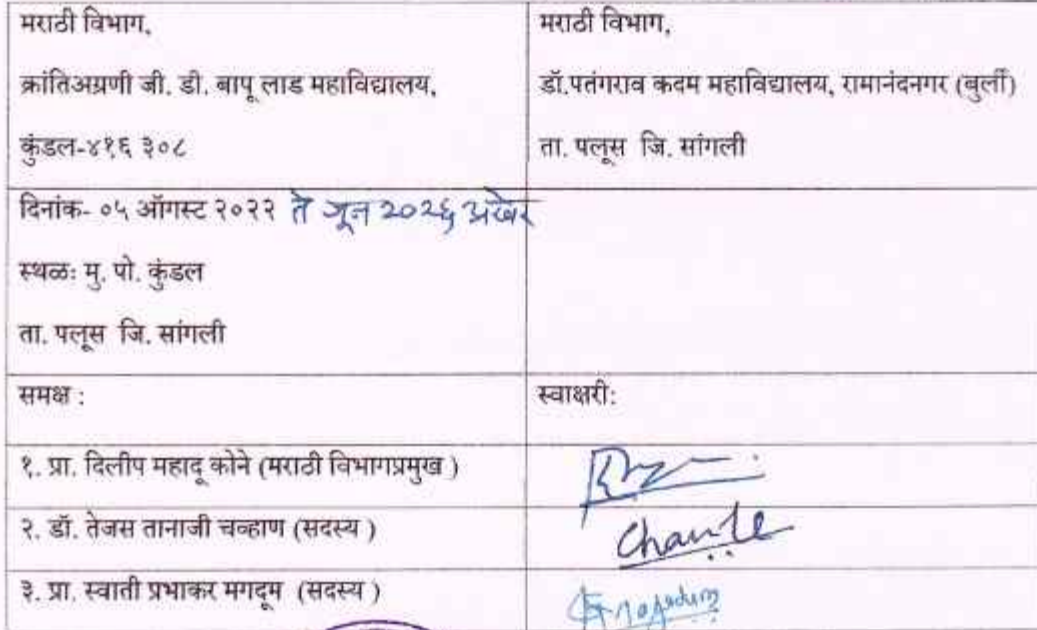 मराठी विभाग,
क्रांतिअग्रणी जी. डी. बापू लाड महाविद्यालय,
कुंडल-४१६ ३०८
मराठी विभाग,
डॉ.पतंगराव कदम महाविद्यालय, रामानंदनगर (बुर्ली)
ता. पलूस जि. सांगली
दिनांक- ०५ ऑगस्ट २०२२ ते जून २०२६ अखेर
स्थळः मु. पो. कुंडल
ता. पलूस जि. सांगली
समक्ष :
स्वाक्षरी:
१. प्रा. दिलीप महादू कोने (मराठी विभागप्रमुख )
२. डॉ. तेजस तानाजी चव्हाण (सदस्य )
३. प्रा. स्वाती प्रभाकर मगदूम (सदस्य )